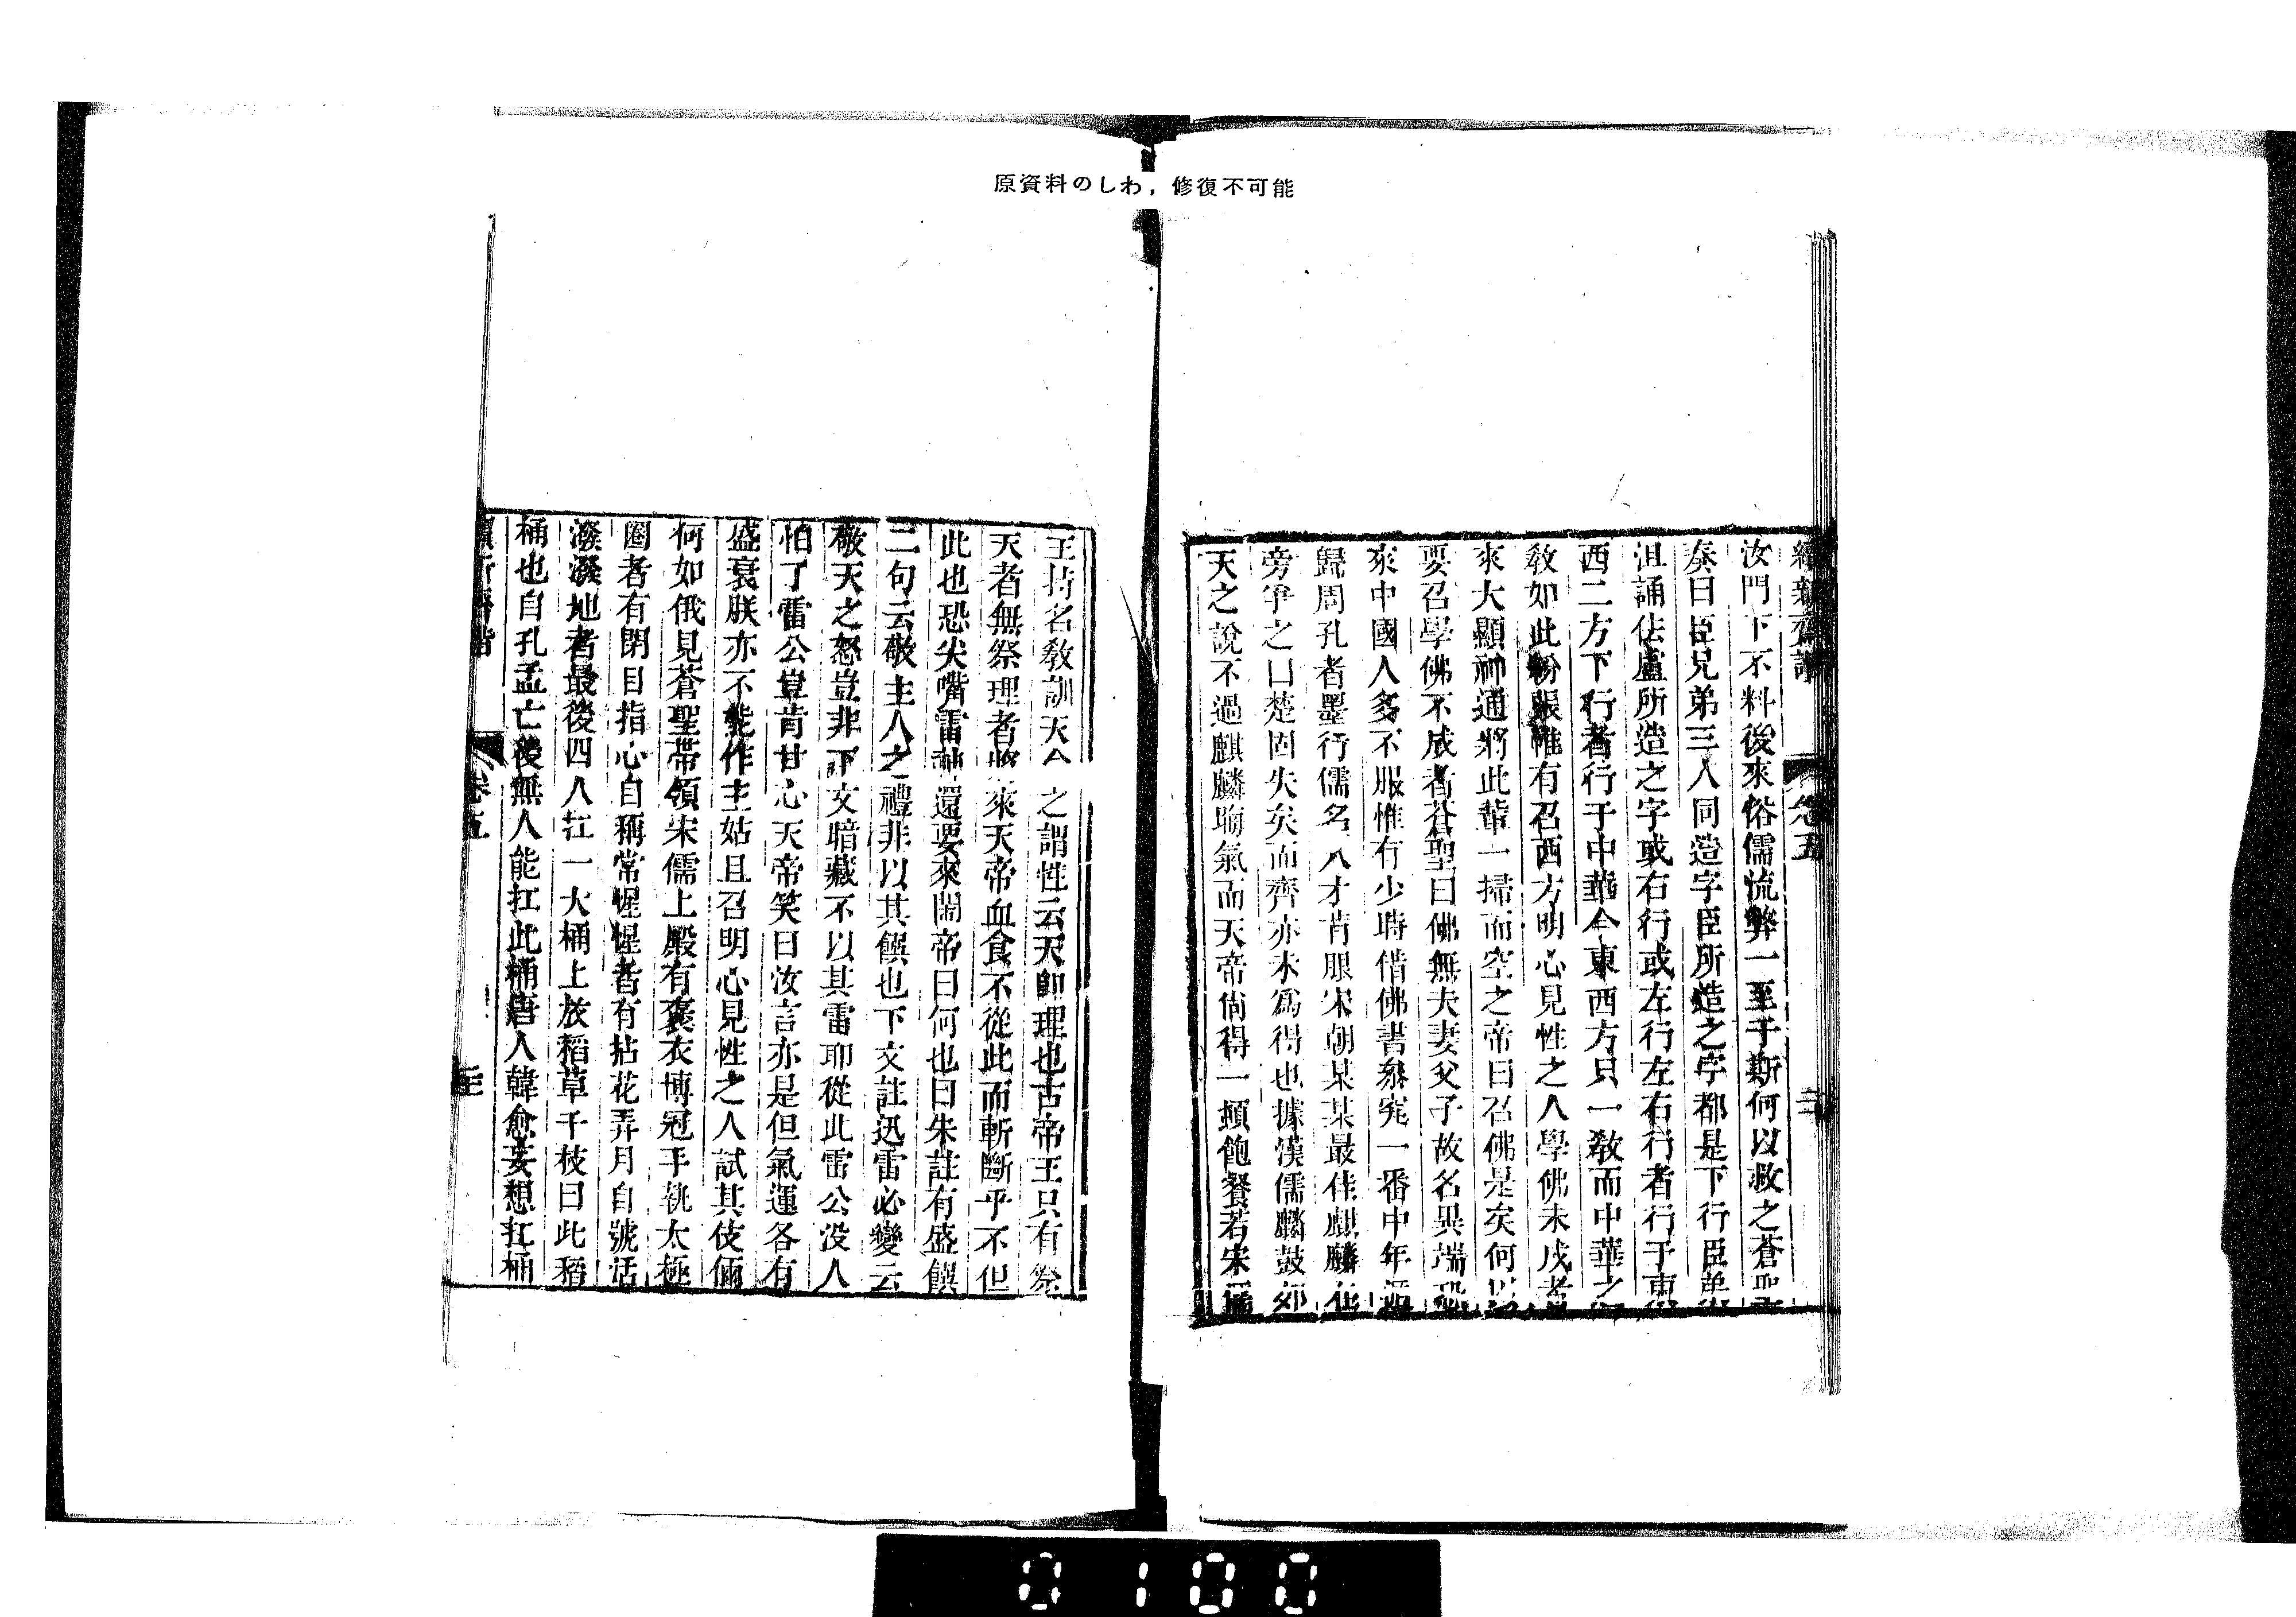 原資料のしわ，修復不可能
續新齊諧
卷五
汝門下不料後來俗儒流弊一至于斯何以救之蒼聖
奏曰臣兄弟三人同造字臣所造之字都是下行臣弟
沮誦佉盧所造之字或右行或左行左右行者行于東
西二方下行者行于中華今東西方只一敎而中華之
敎如此紛張惟有召西方明心見性之人學佛未成者
來大顯神通將此輩一掃而空之帝曰召佛是矣何以
要召學佛不成者蒼聖曰佛無夫妻父子故名異端恐
來中國人多不服惟有少時借佛書參究一番中年
歸周孔者墨行儒名人才肯服宋朝某某最佳麒麟在
旁爭之曰楚固失矣而齊亦未爲得也據漢儒麟鼓郊
天之說不過麒麟晦氣而天帝尙得一頓飽餐若宋儒
王持名敎訓天
之謂性云天卽理也古帝王只有祭
天者無祭理者將來天帝血食不從此而斬斷乎不但
此也恐尖嘴雷神還要來鬧帝曰何也曰朱註有盛饌
二句云敬主人之禮非以其饌也下文註迅雷必變云
敬天之怒豈非下文暗藏不以其雷耶從此雷公没人
怕了雷公豈肯甘心天帝笑曰汝言亦是但氣運各有
盛衰朕亦不能作主姑且召明心見性之人試其伎倆
何如俄見蒼聖帶領宋儒上殿有褒衣博冠手執太極
圈者有閉目指心自稱常惺惺者有拈花弄月自號活
潑潑地者最後四人扛一大桶上放稻草千枝曰此稻
桶也自孔孟亡後無人能扛此桶唐人韓愈妄想扛桶
卷五